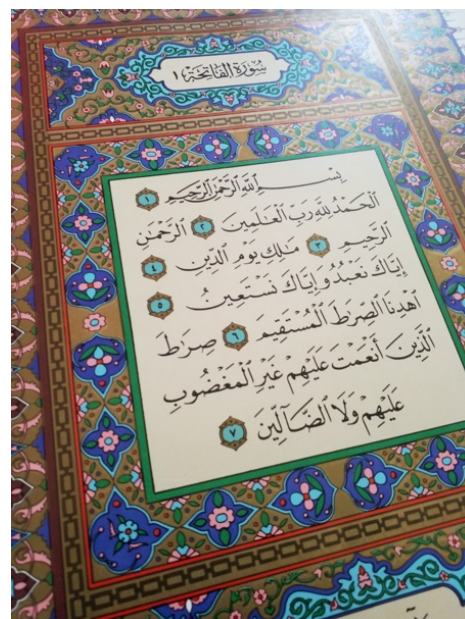 سُورَةُ الْفَاتِحَةِ ١
بِسْمِ اللَّهِ الرَّحْمَٰنِ الرَّحِيمِ ١
الْحَمْدُ لِلَّهِ رَبِّ الْعَٰلَمِينَ ٢ الرَّحْمَٰنِ
الرَّحِيمِ ٣ مَٰلِكِ يَوْمِ الدِّينِ ٤
إِيَّاكَ نَعْبُدُ وَإِيَّاكَ نَسْتَعِينُ ٥
ٱهْدِنَا ٱلصِّرَٰطَ ٱلْمُسْتَقِيمَ ٦ صِرَٰطَ
ٱلَّذِينَ أَنْعَمْتَ عَلَيْهِمْ غَيْرِ ٱلْمَغْضُوبِ
عَلَيْهِمْ وَلَا ٱلضَّآلِّينَ ٧